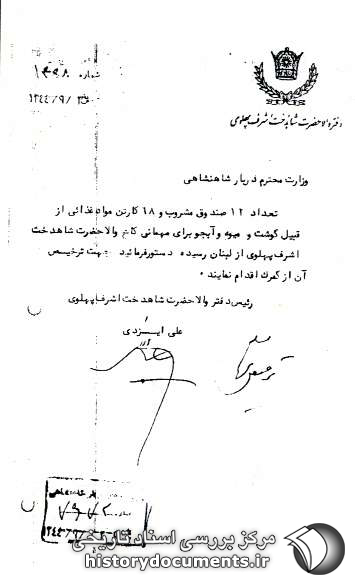 شماره ۱۳۹۸
۱۳۴۴/۹/۳۰
دفتر والاحضرت شاهدخت اشرف پهلوی
وزارت محترم دربار شاهنشاهی
تعداد ۱۲ صندوق مشروب و ۶۸ کارتن مواد غذائی از
قبیل گوشت و میوه و آبجو برای مهمانی کاخ والاحضرت شاهدخت
اشرف پهلوی از لبنان رسیده دستور فرمائید جهت ترخیص
آن از گمرک اقدام نمایند ۰
رئیس دفتر والاحضرت شاهدخت اشرف پهلوی
علی ایزدی
مرکز بررسی اسناد تاریخی
historydocuments.ir